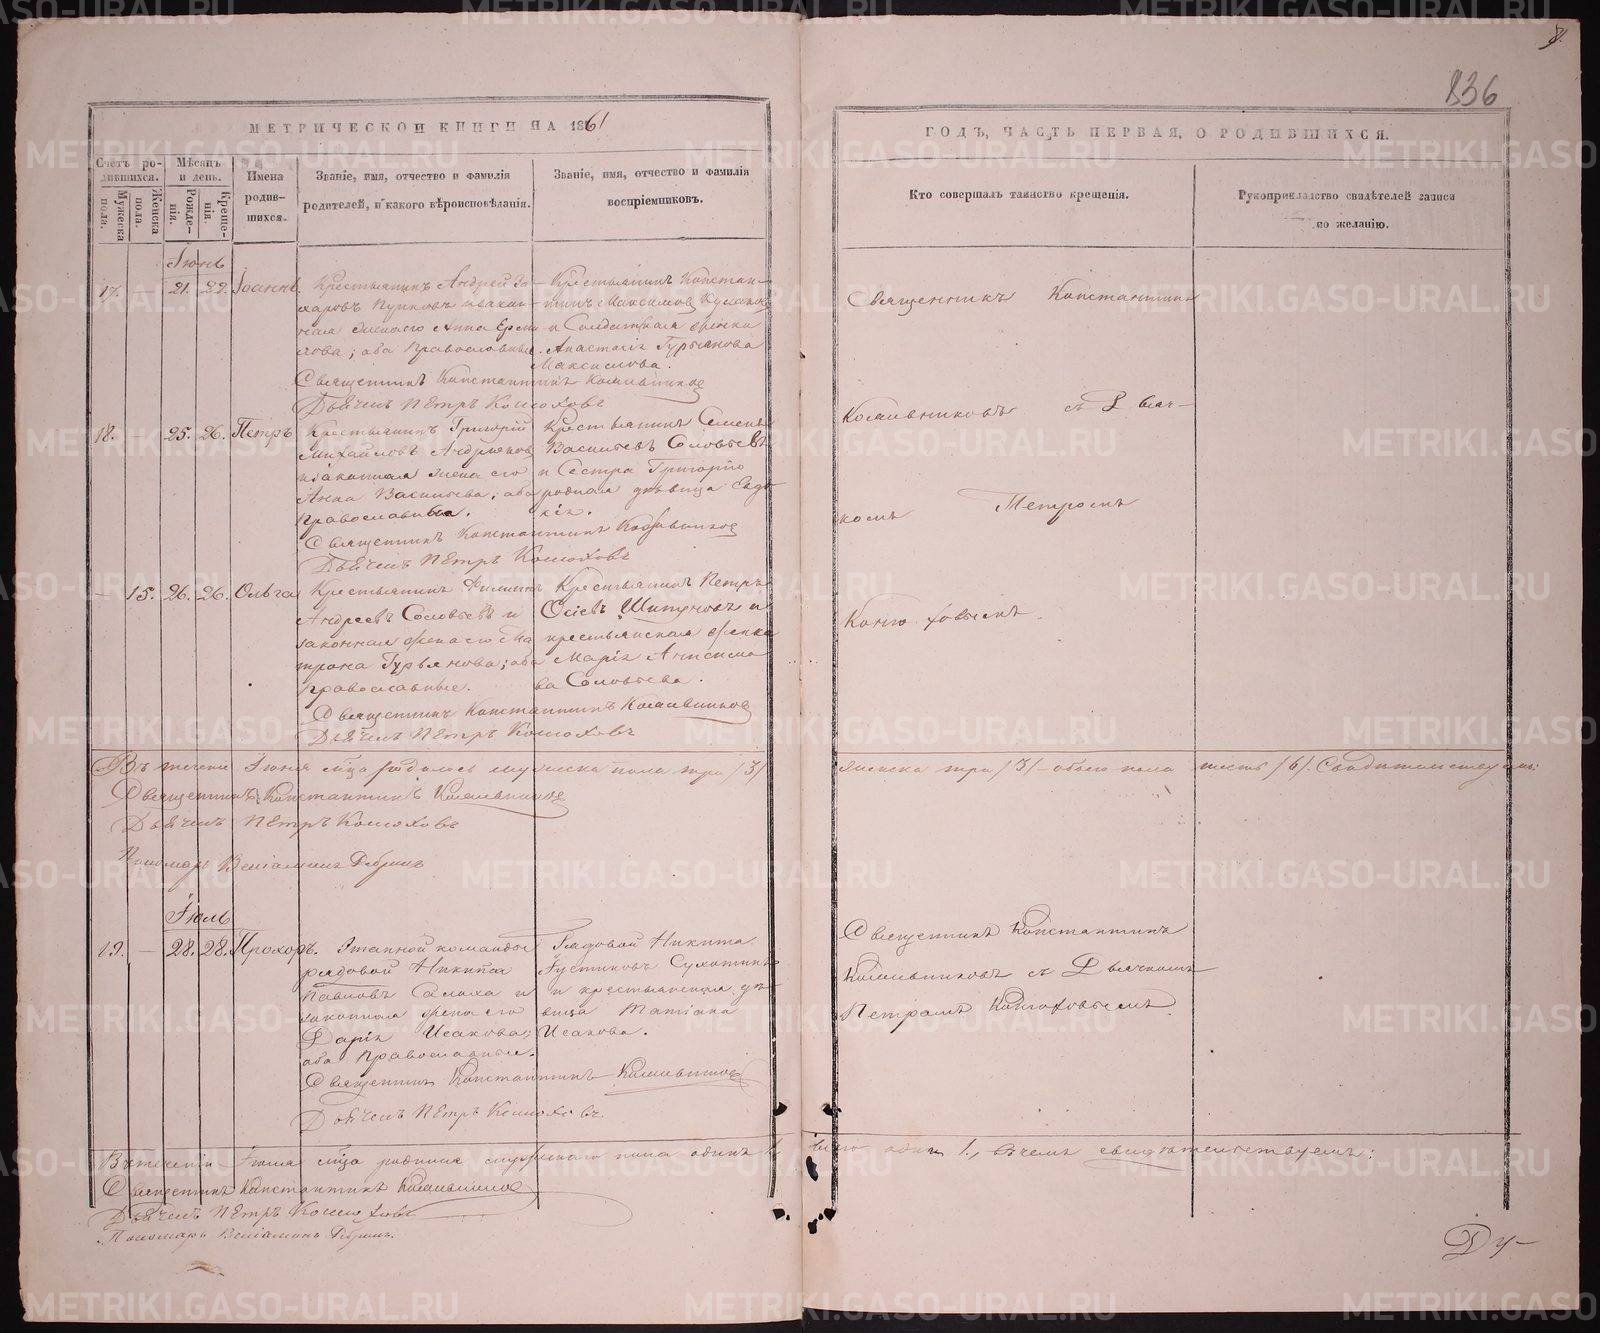 836
МЕТРИЧЕСКОЙ КНИГИ НА 1861
ГОДЪ, ЧАСТЬ ПЕРВАЯ, О РОДИВШИХСЯ.
Счетъ родившихся.
Мужеска пола.
Женска пола.
Мѣсяцъ и день.
Рожденія.
Крещенія.
Имена родившихся.
Званіе, имя, отчество и фамилія
родителей, и какого вѣроисповѣданія.
Званіе, имя, отчество и фамилія
воспріемниковъ.
Кто совершалъ таинство крещенія.
Рукоприкладство свидѣтелей записи
по желанію.
Іюнь
17. — 21. 22. Іоаннъ.
Крестьянинъ Андрей За-
харовъ
Анна
лова; оба Православные.
Крестьянинъ Констан-
тинъ Максимов
и Солдатская женка
Анастасія Гурьянова
Максимова.
Священникъ Константинъ
Дьячекъ Петръ Конюховъ
Священникъ Константинъ
съ Дьяч-
комъ Петромъ
Конюховымъ.
18. — 25. 26. Петръ
Крестьянинъ Григорій
Михайловъ
и законная жена его
Анна Васильева; оба
Православные.
Крестьянинъ Семенъ
Васильевъ Соловьевъ
и Сестра Григорію
родная дѣвица Евдо-
кія.
Священникъ Константинъ
Дьячекъ Петръ Конюховъ
— 15. 26. 26. Ольга
Крестьянинъ Филиппъ
Андреевъ Соловьевъ и
законная жена его Ма-
трона Гурьянова; оба
Православные.
Крестьянинъ Петръ
Осіевъ Шипуновъ и
крестьянская женка
Марія Анисимо-
ва Соловьева.
Священникъ Константинъ
Дьячекъ Петръ Конюховъ
Въ теченіи Іюня м͠ца родилось мужеска пола три /3/
женска три /3/ — обоего пола шесть /6/. Свидѣтельствуемъ:
Священникъ Константинъ
Дьячекъ Петръ Конюховъ
Пономарь Веніаминъ
Іюль
19. — 28. 28. Прохоръ.
Этапной команды
рядовой Никита
Павловъ и
законная жена его
Дарія Исакова;
оба Православные.
Рядовой Никита
и крестьянская дѣ-
вица Матіана
Исакова.
Священникъ Константинъ
Дьячекъ Петръ Конюховъ.
Священникъ Константинъ
съ Дьячкомъ
Петромъ Конюховымъ.
Въ теченіи Іюля м͠ца родился мужескаго пола одинъ 1.
всего одинъ 1., въ чемъ свидѣтельствуемъ:
Священникъ Константинъ
Дьячекъ Петръ Конюховъ
Пономарь Веніаминъ
Ду-
METRIKI.GASO-URAL.RU